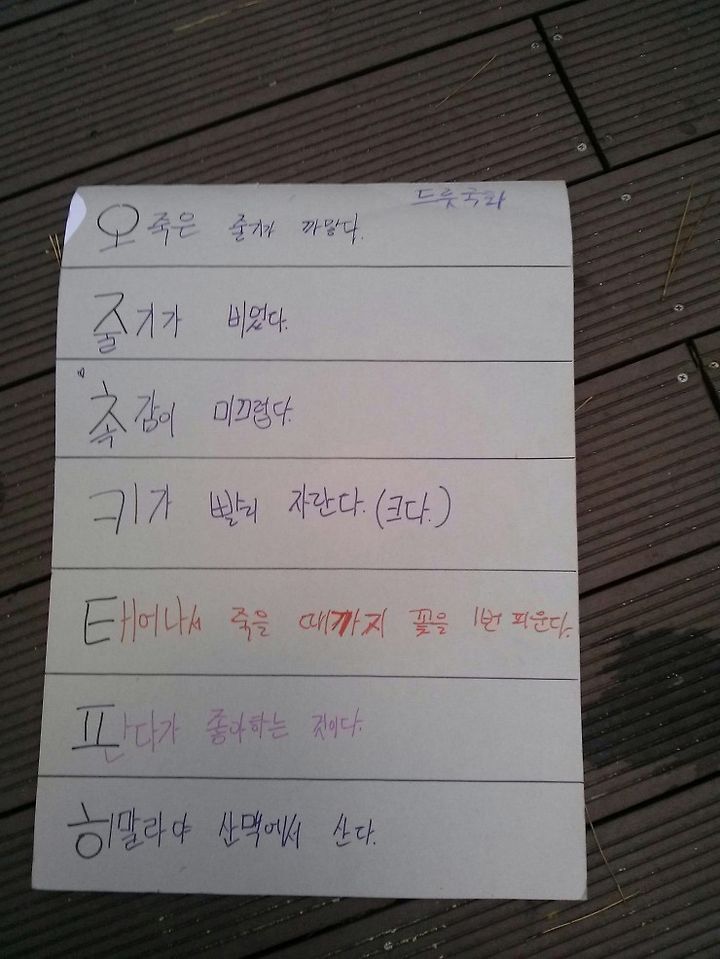 드룻국화
오죽은 줄기가 까맣다.
줄기가 비었다.
촉감이 미끄럽다.
키가 빨리 자란다.(크다.)
태어나서 죽을 때까지 꽃을 1번 피운다.
판다가 좋아하는 것이다.
히말라야 산맥에서 산다.